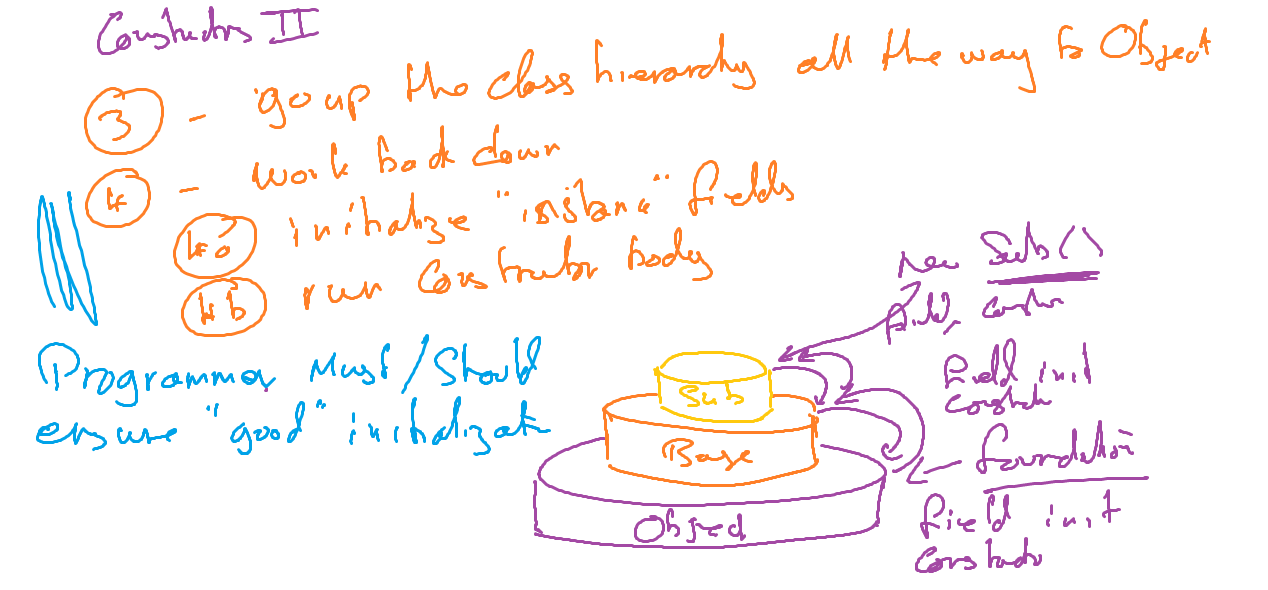 Constructors II
3 - go up the class hierarchy all the way to Object
4 - work back down
4a initialize "instance" fields
4b run constructor body
Programmer Must/Should
ensure "good" initialization
new Sub()
field, constr
Field init
Constructor
Sub
Base
Object
foundation
field init
Constructor